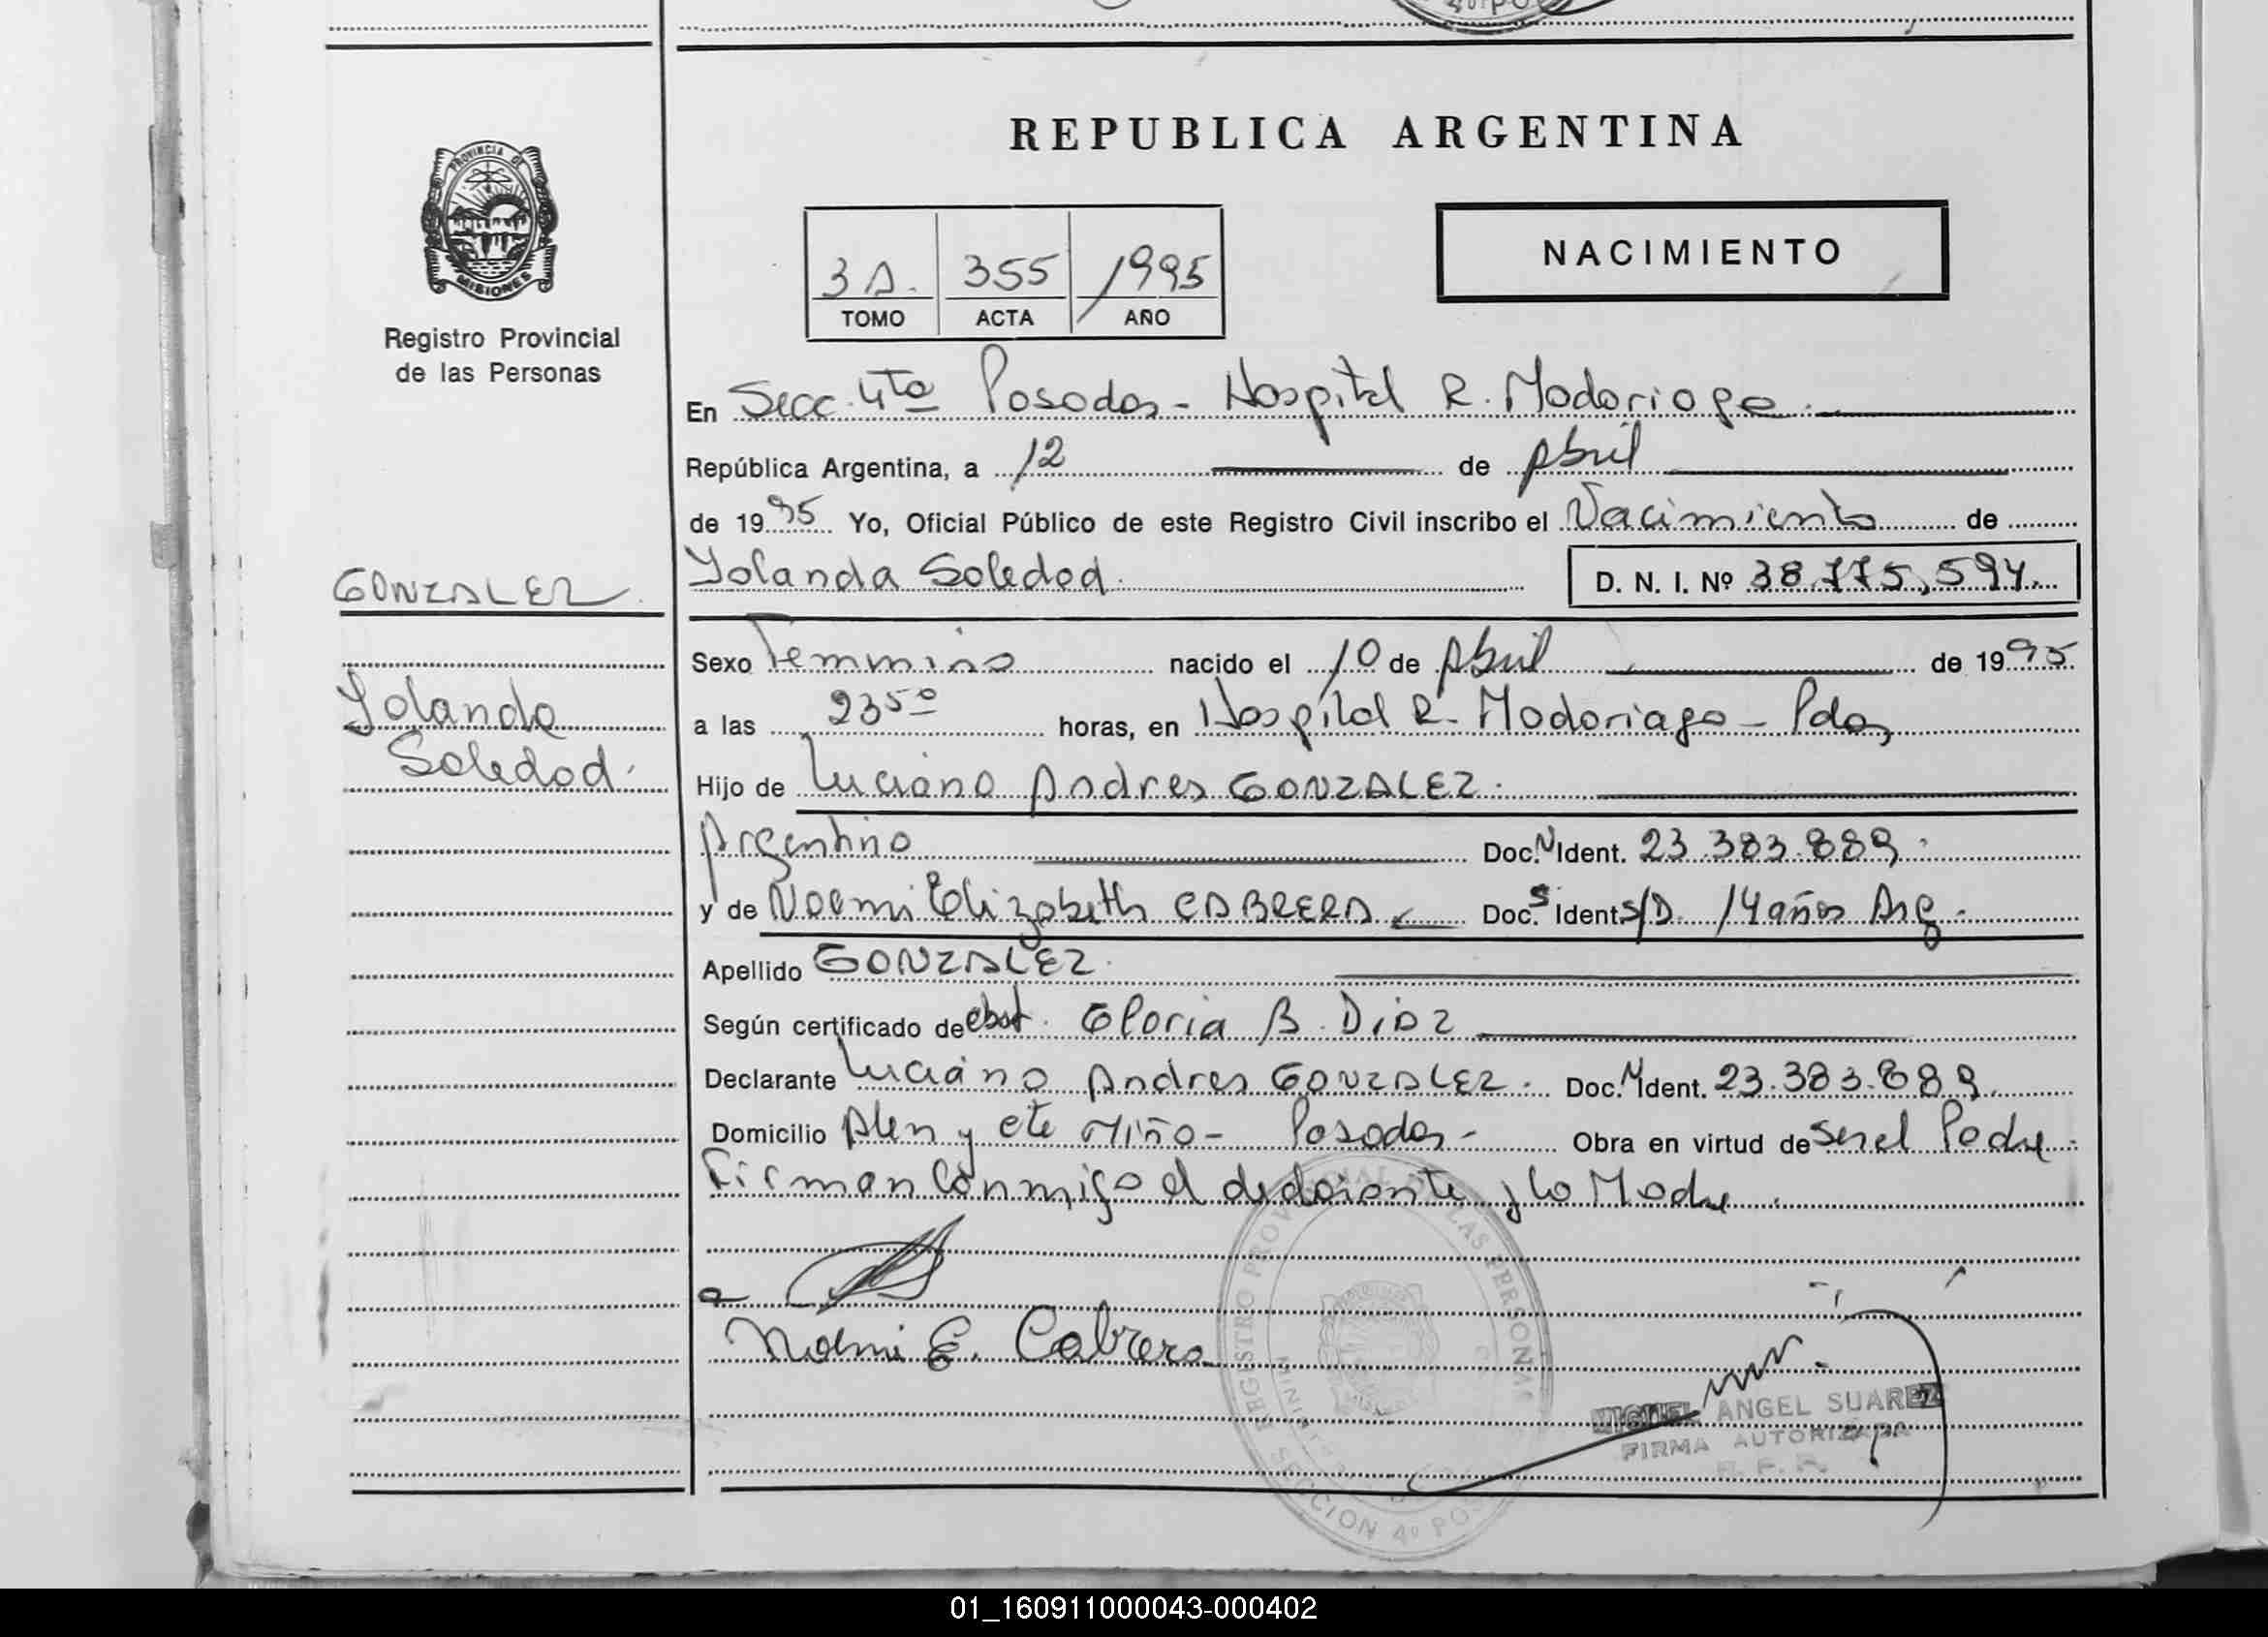 REPUBLICA ARGENTINA
PROVINCIA DE
MISIONES
Registro Provincial
de las Personas
3 A. 355 1995
TOMO ACTA AÑO
NACIMIENTO
En Secc. 4ta Posadas - Hospital R. Madariaga.
República Argentina, a 12 de Abril
de 1995 Yo, Oficial Público de este Registro Civil inscribo el Nacimiento de
Yolanda Soledad. D. N. I. Nº 38.775,594.
GONZALEZ.
Yolanda
Soledad.
Sexo Femmino nacido el 10 de Abril de 1995
a las 23 50 horas, en Hospital R. Madariaga - Pdas
Hijo de Luciano Andres GONZALEZ.
Argentino Doc. N Ident. 23.383.889.
y de Noemi Elizabeth CABRERA Doc. S Ident. S/D. 14 años Arg.
Apellido GONZALEZ.
Según certificado de obst. Gloria B. Diaz
Declarante Luciano Andres GONZALEZ. Doc. N Ident. 23.383.889.
Domicilio Alem y Cte Miño - Posadas - Obra en virtud de ser el Padre.
Firman Conmigo el declarante y la Madre.
Noemi E. Cabrera
REGISTRO PROVINCIAL DE LAS PERSONAS
SECCION 4º POS
MIGUEL ANGEL SUAREZ
FIRMA AUTORIZADA
01_160911000043-000402